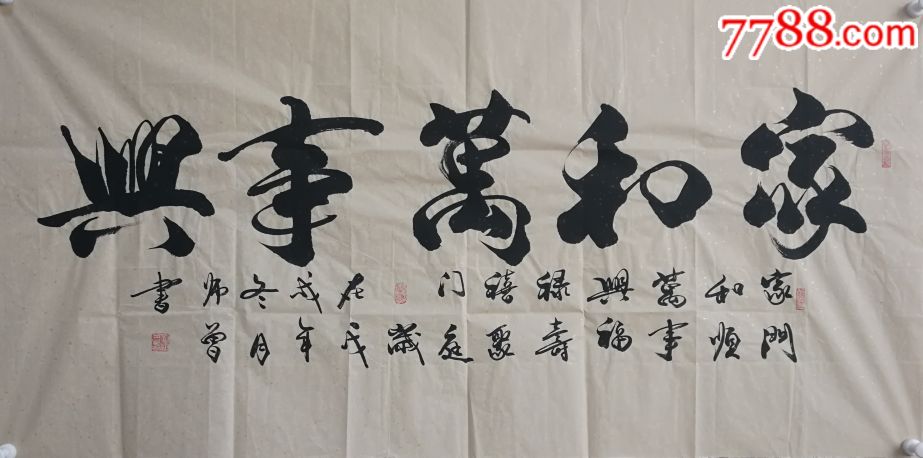 7788.com
家和萬事興
家門
和順
萬事
興福
禄壽
禧聚
门庭
歲
在戊
戌年
冬月
师曾
書